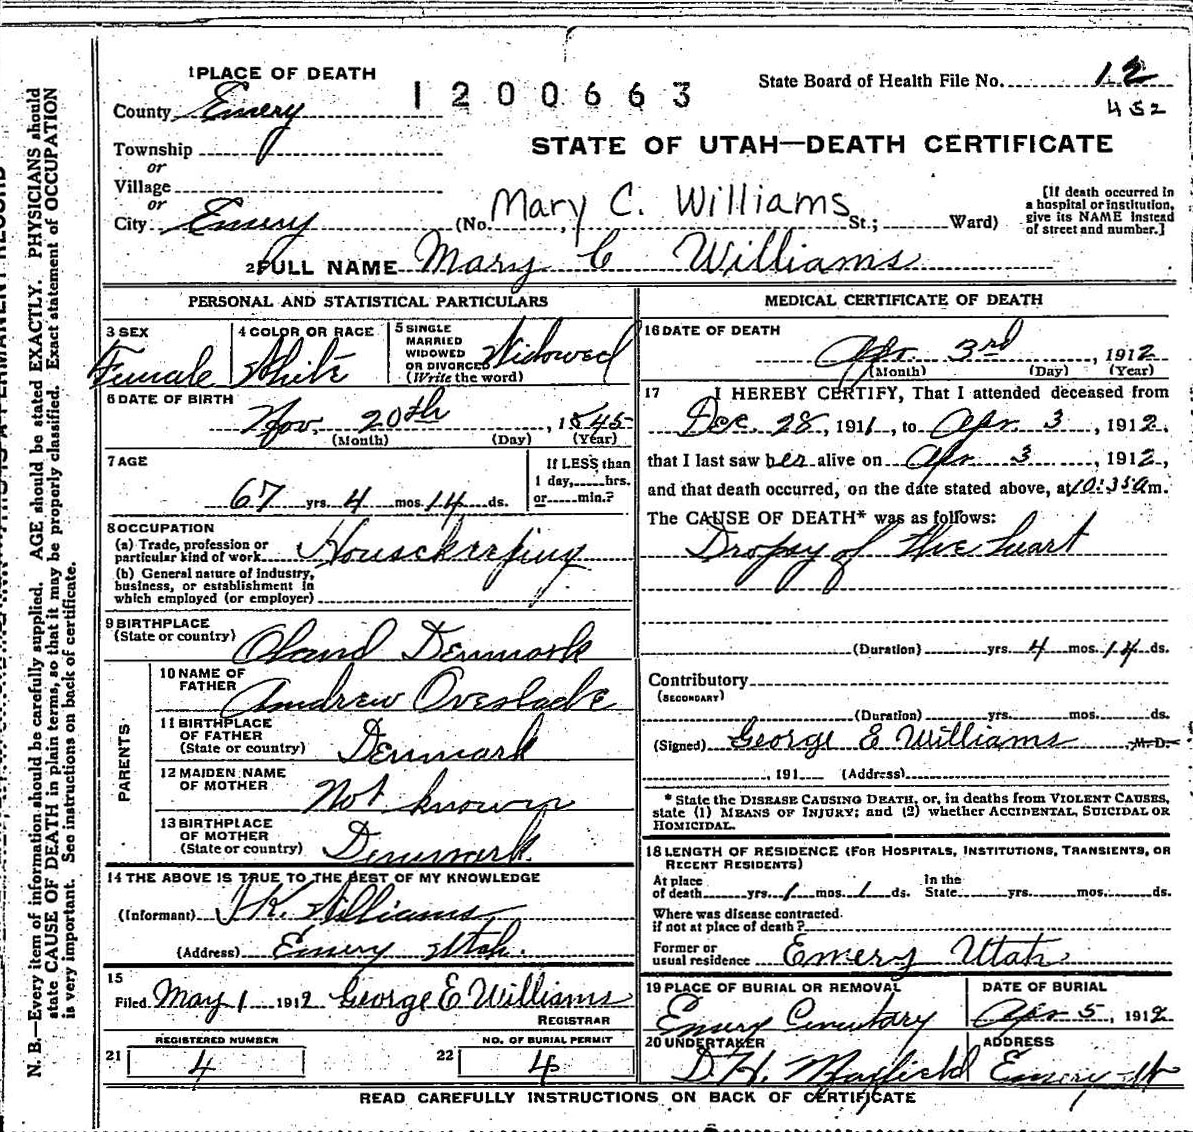 1 PLACE OF DEATH
County Emery
Township
or
Village
or
City Emery
1200663
State Board of Health File No. 12
452
STATE OF UTAH—DEATH CERTIFICATE
(No. Mary C. Williams St.; Ward)
[If death occurred in
a hospital or institution,
give its NAME instead
of street and number.]
2 FULL NAME Mary C Williams
PERSONAL AND STATISTICAL PARTICULARS
3 SEX
Female
4 COLOR OR RACE
White
5 SINGLE
MARRIED
WIDOWED
OR DIVORCED
(Write the word)
Widowed
6 DATE OF BIRTH
Nov. 20th, 1845
(Month) (Day) (Year)
7 AGE
67 yrs. 4 mos. 14 ds.
If LESS than
1 day, hrs.
or min.?
8 OCCUPATION
(a) Trade, profession or
particular kind of work Housekeeping
(b) General nature of industry,
business, or establishment in
which employed (or employer)
9 BIRTHPLACE
(State or country) Oland Denmark
PARENTS
10 NAME OF
FATHER Andrew Overlade
11 BIRTHPLACE
OF FATHER
(State or country) Denmark
12 MAIDEN NAME
OF MOTHER Not known
13 BIRTHPLACE
OF MOTHER
(State or country) Denmark
14 THE ABOVE IS TRUE TO THE BEST OF MY KNOWLEDGE
(Informant) Williams
(Address) Emery Utah.
15
Filed May 1 1912 George E Williams
REGISTRAR
21 REGISTERED NUMBER
4
22 NO. OF BURIAL PERMIT
4
MEDICAL CERTIFICATE OF DEATH
16 DATE OF DEATH
Apr. 3rd, 1912
(Month) (Day) (Year)
17 I HEREBY CERTIFY, That I attended deceased from
Dec. 28, 1911, to Apr 3, 1912,
that I last saw her alive on Apr 3, 1912,
and that death occurred, on the date stated above, at 10:35 a m.
The CAUSE OF DEATH* was as follows:
Dropsy of the heart
(Duration) yrs. 4 mos. 14 ds.
Contributory
(SECONDARY)
(Duration) yrs. mos. ds.
(Signed) George E Williams M.D.
, 191 (Address)
* State the DISEASE CAUSING DEATH, or, in deaths from VIOLENT CAUSES,
state (1) MEANS OF INJURY; and (2) whether ACCIDENTAL, SUICIDAL OR
HOMICIDAL.
18 LENGTH OF RESIDENCE (FOR HOSPITALS, INSTITUTIONS, TRANSIENTS, OR
RECENT RESIDENTS)
At place
of death yrs. 1 mos. 1 ds. In the
State yrs. mos. ds.
Where was disease contracted.
if not at place of death?
Former or
usual residence Emery Utah
19 PLACE OF BURIAL OR REMOVAL
Emery Cemetary
DATE OF BURIAL
Apr 5, 1912
20 UNDERTAKER
ADDRESS
D. H. Maxfield Emery Ut
READ CAREFULLY INSTRUCTIONS ON BACK OF CERTIFICATE
N. B.—Every item of information should be carefully supplied. AGE should be stated EXACTLY. PHYSICIANS should
state CAUSE OF DEATH in plain terms, so that it may be properly classified. Exact statement of OCCUPATION
is very important. See instructions on back of certificate.